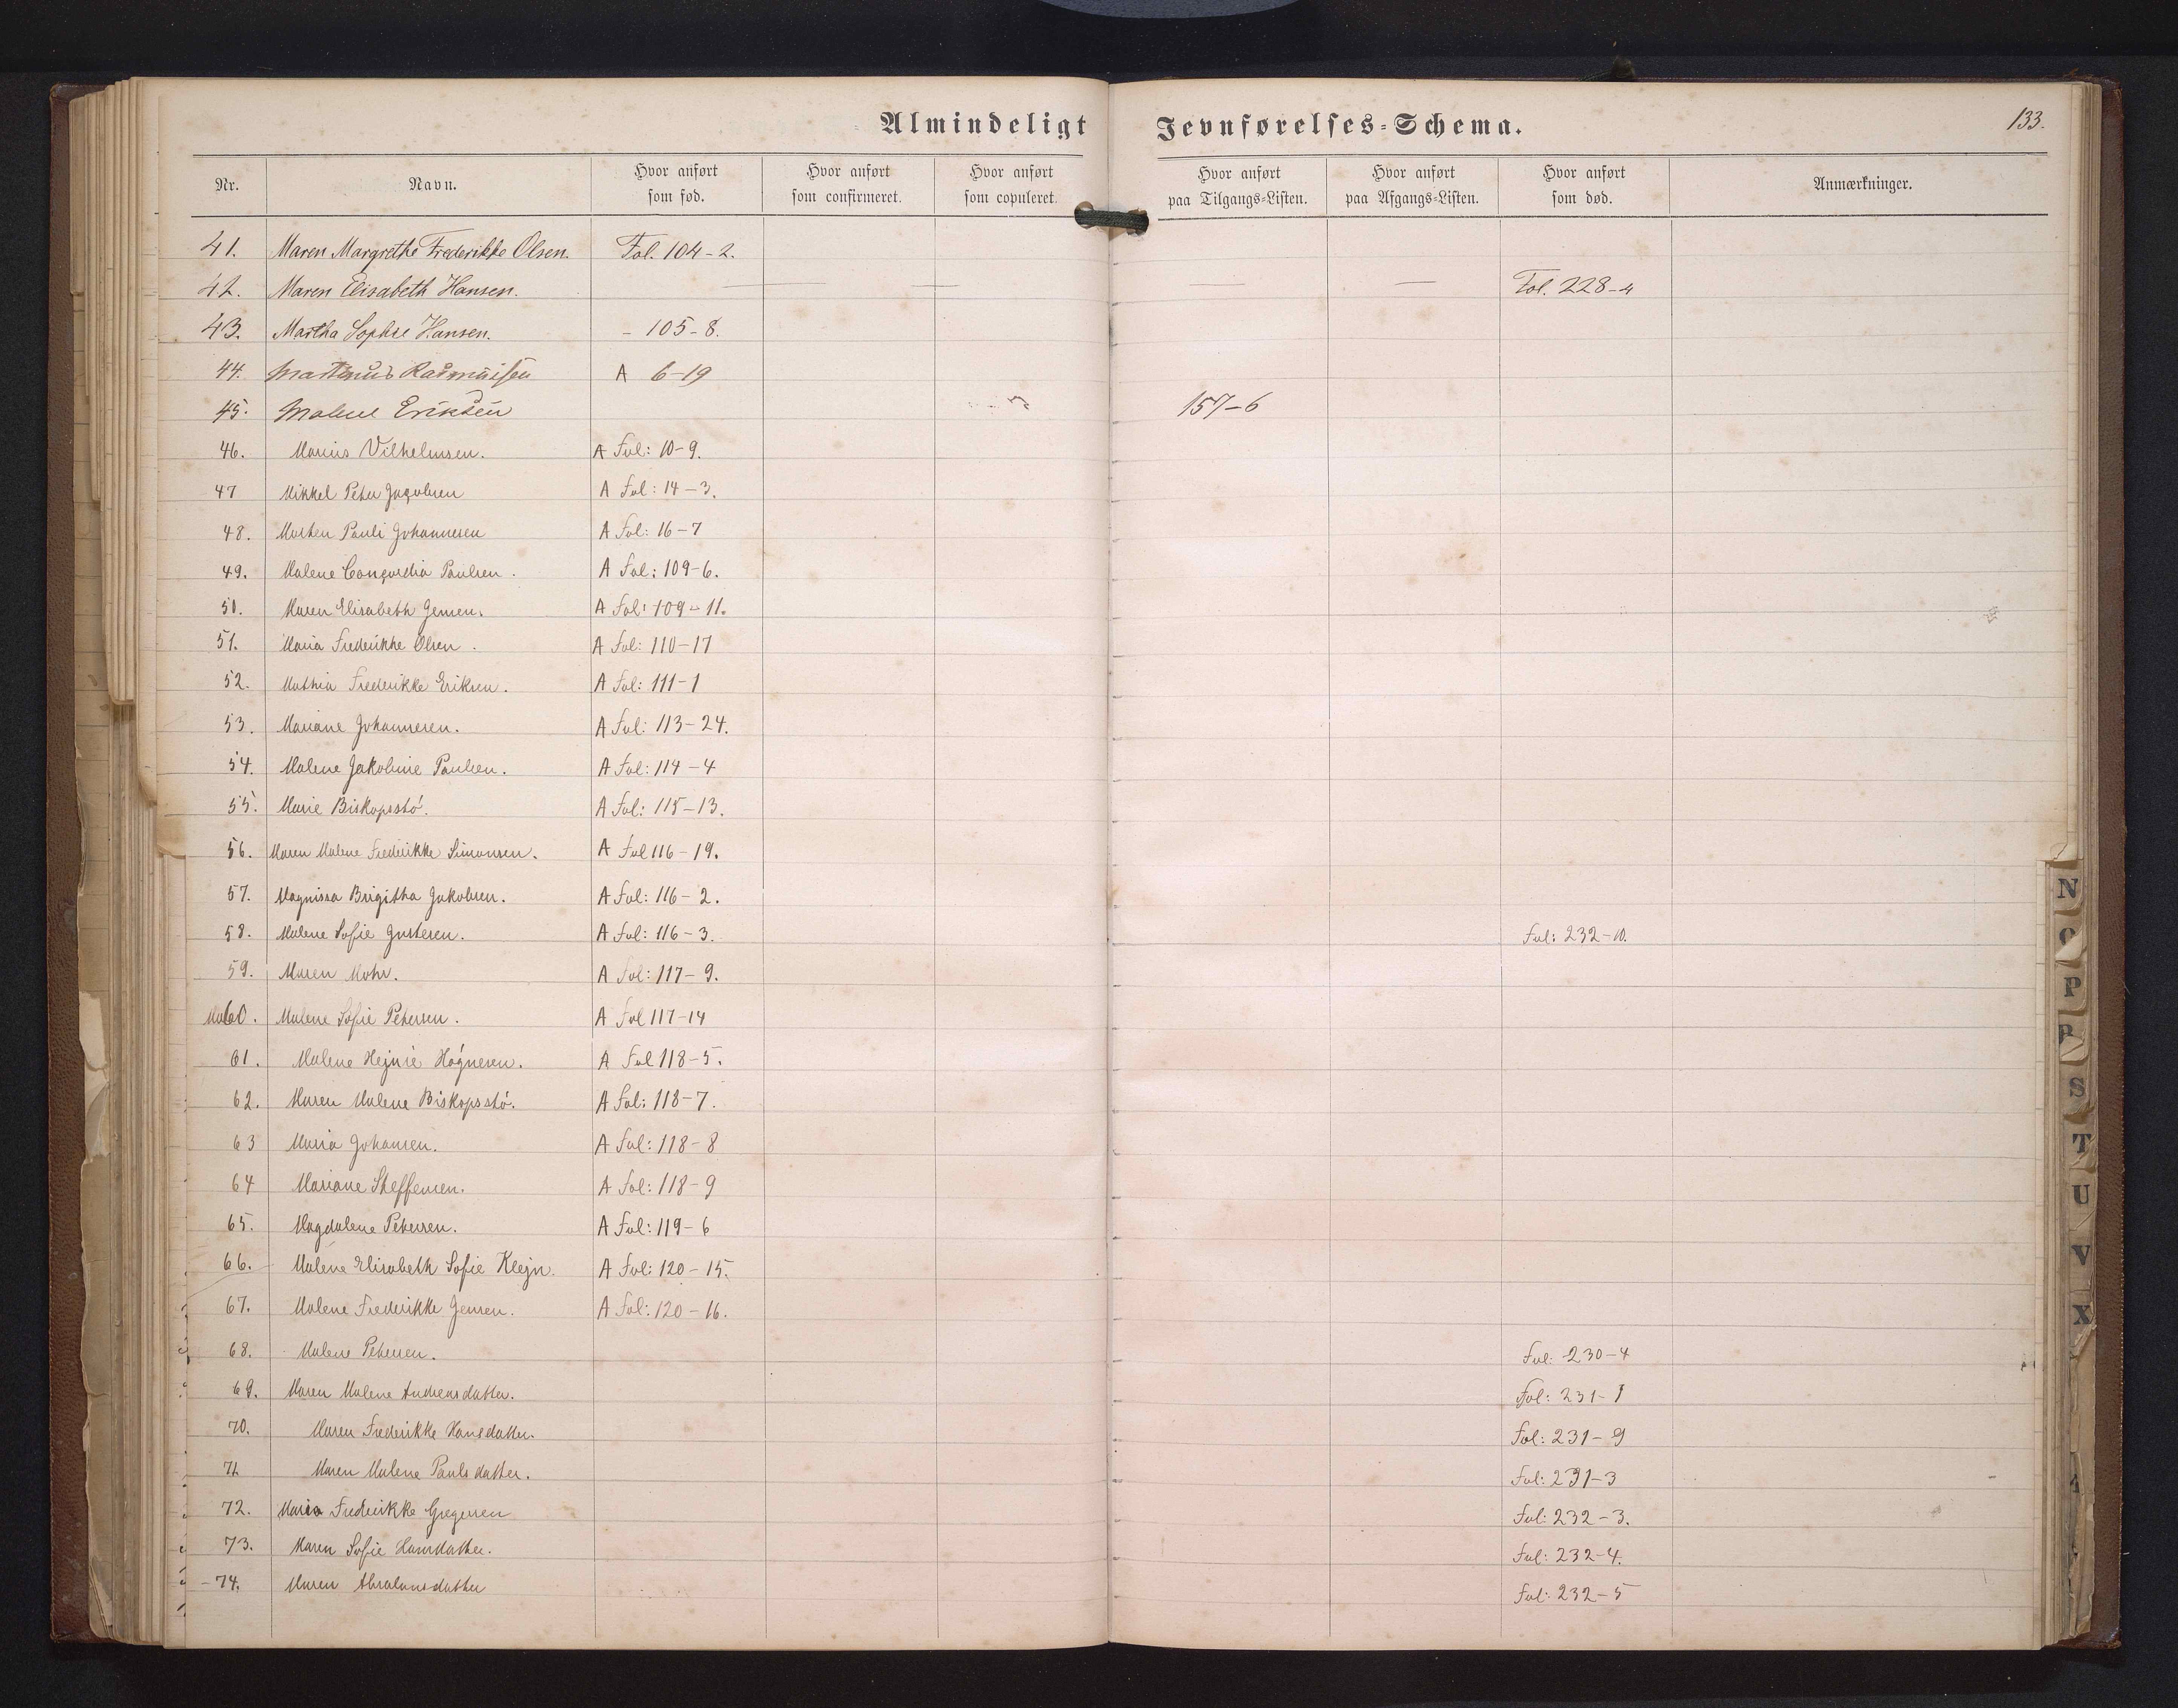 Almindeligt Jevnførelses-Schema. 133.
Nr. Navn. Hvor anført som fød. Hvor anført som confirmeret. Hvor anført som copuleret. Hvor anført paa Tilgangs-Listen. Hvor anført paa Afgangs-Listen. Hvor anført som død. Anmærkninger.
41. Maren Margrethe Frederikke Olsen. Fol. 104-2.
42. Maren Elisabeth Hansen. — — — — Fol. 228-4
43. Martha Sophie Hansen. - 105-8.
44. Martinus Rasmussen A 6-19
45. Malene Eriksen 157-6
46. Marius Vilhelmsen. A Fol: 10-9.
47 Mikkel Peter Jacobsen A Fol: 14-3.
48. Morten Pauli Johannesen A Fol: 16-7
49. Malene Concordia Paulsen. A Fol: 109-6.
50. Maren Elisabeth Jensen. A Fol: 109-11.
51. Maria Frederikke Olsen. A Fol: 110-17
52. Mathia Frederikke Eriksen. A Fol: 111-1
53. Mariane Johannesen. A Fol: 113-24.
54. Malene Jakobine Paulsen. A Fol: 114-4
55. Marie Biskopsstó. A Fol: 115-13.
56. Maren Malene Frederikke Simonsen. A Fol 116-19.
57. Magnissa Brigitha Jakobsen. A Fol: 116-2.
58. Malene Sofie Justesen. A Fol: 116-3. Fol: 232-10.
59. Maren Mohr. A Fol: 117-9.
60. Malene Sofie Petersen. A Fol 117-14
61. Malene Hejnie Hógnesen. A Fol 118-5.
62. Maren Malene Biskopsstó. A Fol: 118-7.
63 Maria Johansen. A Fol: 118-8
64 Mariane Steffensen. A Fol: 118-9
65. Magdalene Petersen. A Fol: 119-6
66. Malene Elisabeth Sofie Klejn. A Fol: 120-15.
67. Malene Frederikke Jensen. A Fol: 120-16.
68. Malene Petersen. Fol: 230-4
69. Maren Malene Andreasdatter. Fol: 231-1
70. Maren Frederikke Hansdatter. Fol: 231-9
71. Maren Malene Paulsdatter. Fol: 231-3
72. Maria Frederikke Gregersen Fol: 232-3.
73. Maren Sofie Hansdatter. Fol: 232-4.
-74. Maren Abrahamsdatter Fol: 232-5
N
O
P
R
S
T
U
V
X